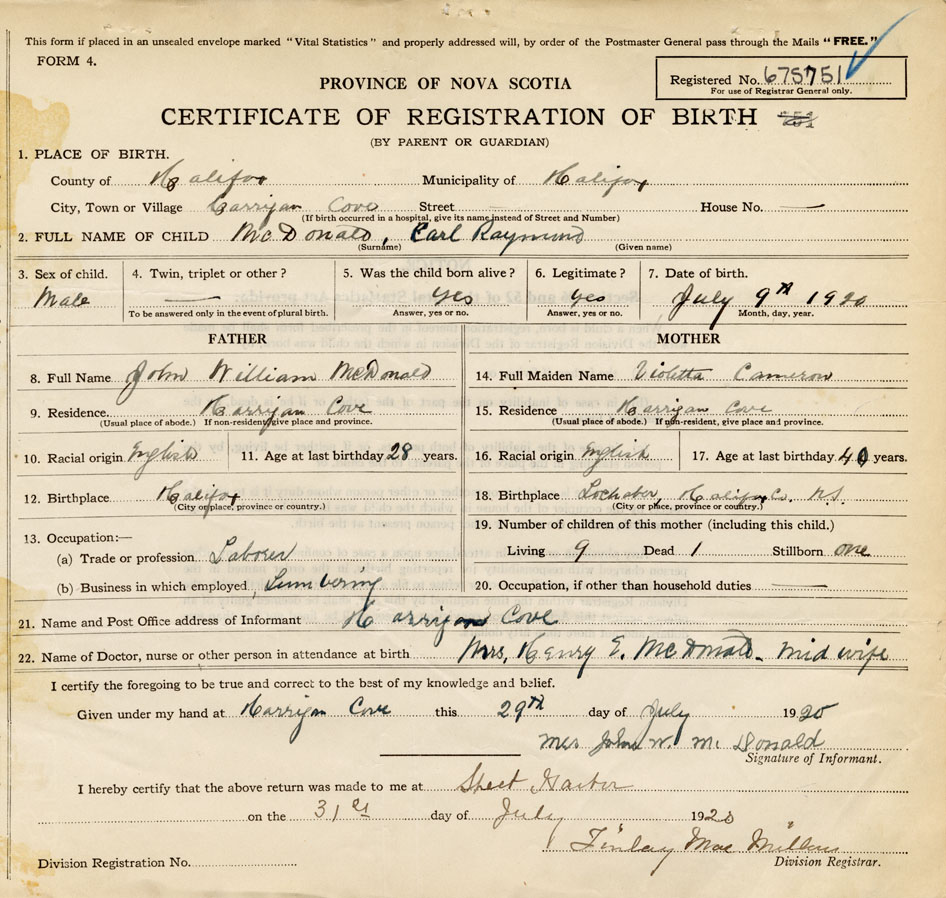 This form if placed in an unsealed envelope marked "Vital Statistics" and properly addressed will, by order of the Postmaster General pass through the Mails "FREE."
FORM 4.
Registered No. 675751
For use of Registrar General only.
PROVINCE OF NOVA SCOTIA
CERTIFICATE OF REGISTRATION OF BIRTH
(BY PARENT OR GUARDIAN)
1. PLACE OF BIRTH.
County of Halifax Municipality of Halifax
City, Town or Village Harrigan Cove Street House No. —
(If birth occurred in a hospital, give its name instead of Street and Number)
2. FULL NAME OF CHILD McDonald, Earl Raymond
(Surname) (Given name)
3. Sex of child. 4. Twin, triplet or other? 5. Was the child born alive? 6. Legitimate? 7. Date of birth.
Male — Yes Yes July 9th 1920
To be answered only in the event of plural birth. Answer, yes or no. Answer, yes or no. Month, day, year.
FATHER MOTHER
8. Full Name John William McDonald 14. Full Maiden Name Violetta Cameron
9. Residence. Harrigan Cove 15. Residence Harrigan Cove
(Usual place of abode.) If non-resident, give place and province. (Usual place of abode.) If non-resident, give place and province.
10. Racial origin English 11. Age at last birthday 28 years. 16. Racial origin English 17. Age at last birthday 40 years.
12. Birthplace Halifax 18. Birthplace Lochaber, Halifax Co. N.S.
(City or place, province or country.) (City or place, province or country.)
13. Occupation:— 19. Number of children of this mother (including this child.)
(a) Trade or profession Laborer Living 9 Dead 1 Stillborn one
(b) Business in which employed Lumbering 20. Occupation, if other than household duties —
21. Name and Post Office address of Informant Harrigan Cove
22. Name of Doctor, nurse or other person in attendance at birth Mrs. Henry E. McDonald - Midwife
I certify the foregoing to be true and correct to the best of my knowledge and belief.
Given under my hand at Harrigan Cove this 29th day of July 1920
Mrs John W. McDonald
Signature of Informant.
I hereby certify that the above return was made to me at Sheet Harbor
on the 31st day of July 1920
Finlay MacMillan
Division Registration No. Division Registrar.